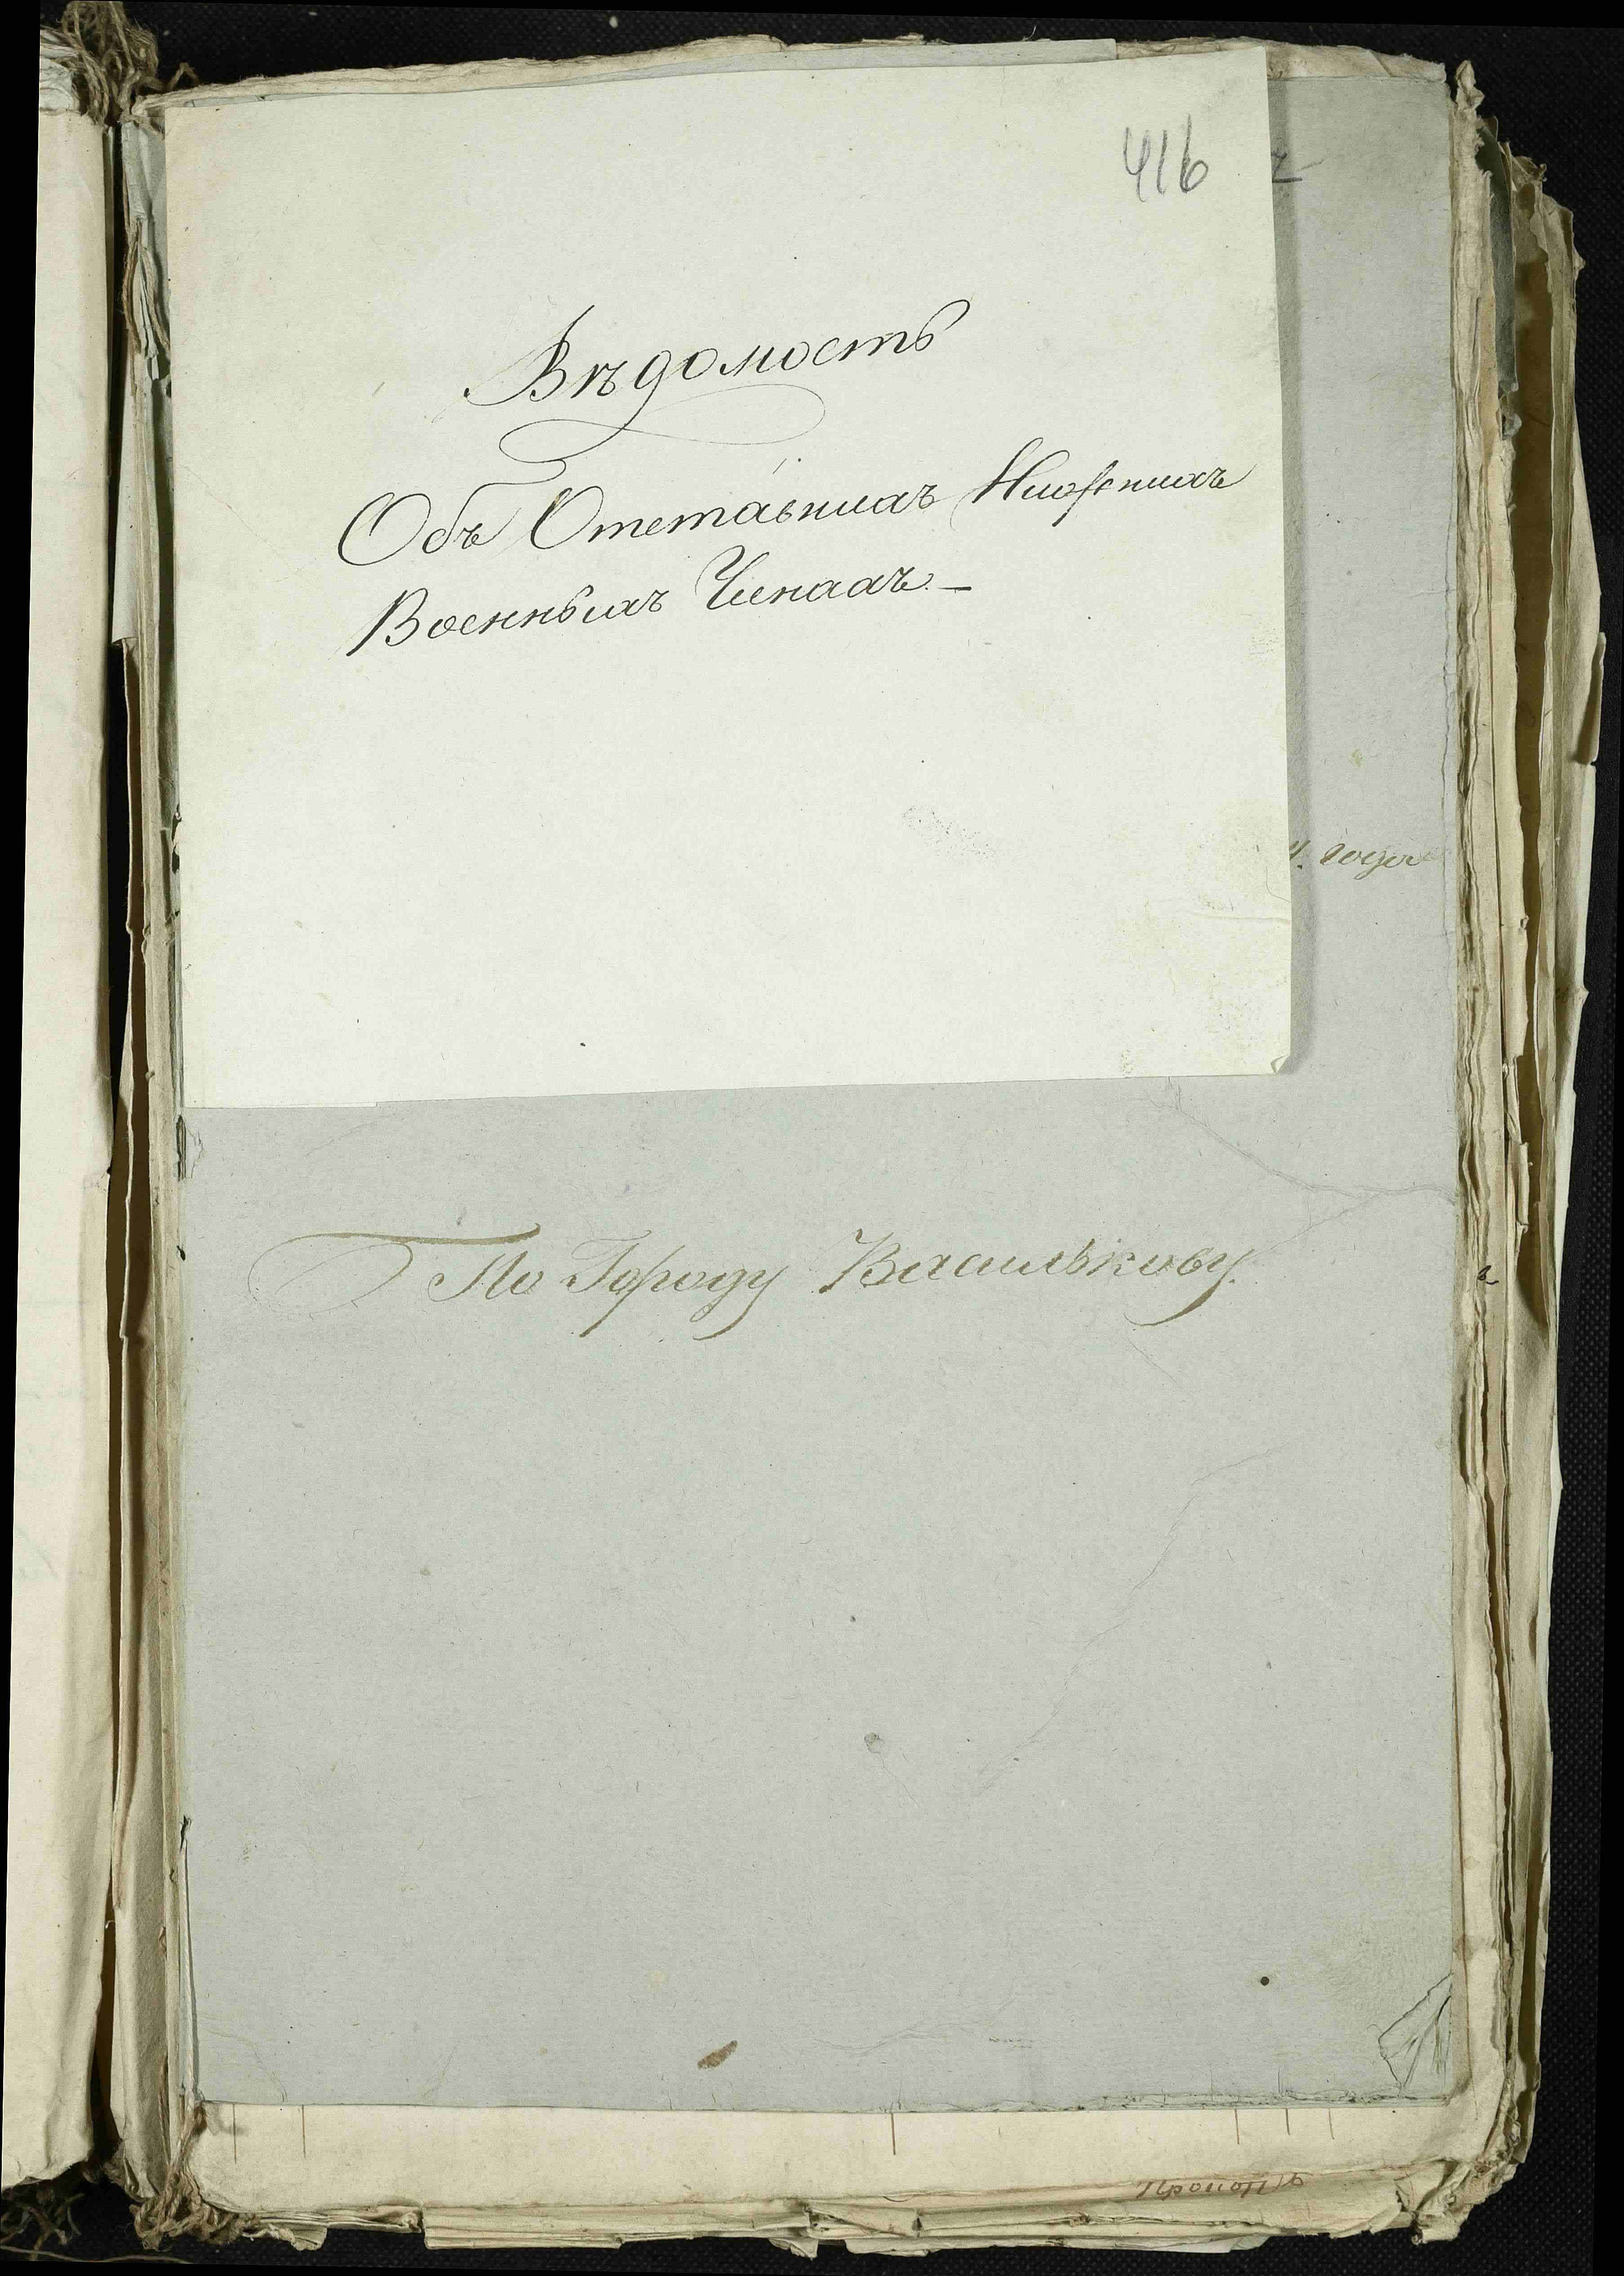 416
Вѣдомость
Объ Отставныхъ Нижнихъ
Военныхъ Чинахъ. —
года
По Городу Василькову.